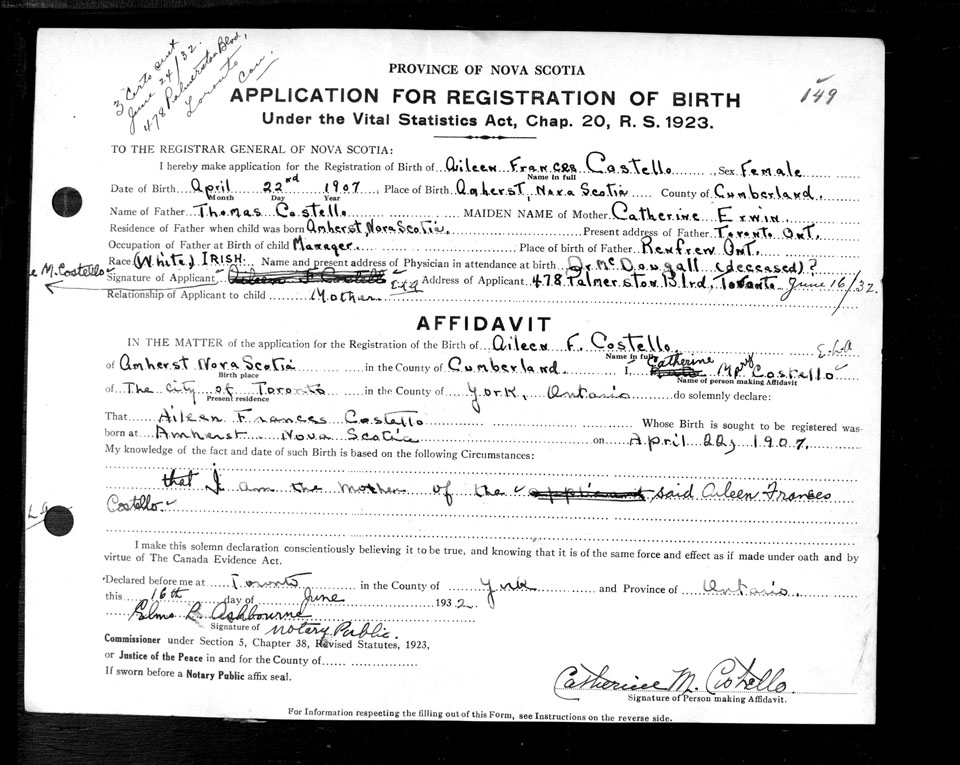 3 Certs sent
June 24/32.
478 Palmerston Blvd,
Toronto
Can.
149
PROVINCE OF NOVA SCOTIA
APPLICATION FOR REGISTRATION OF BIRTH
Under the Vital Statistics Act, Chap. 20, R. S. 1923.
TO THE REGISTRAR GENERAL OF NOVA SCOTIA:
I hereby make application for the Registration of Birth of Aileen Frances Costello, Sex Female
Name in full
Date of Birth April 22nd 1907, Place of Birth Amherst, Nova Scotia County of Cumberland.
Month Day Year
Name of Father Thomas Costello MAIDEN NAME of Mother Catherine Erwin
Residence of Father when child was born Amherst, Nova Scotia. Present address of Father Toronto Ont.
Occupation of Father at Birth of child Manager. Place of birth of Father Renfrew Ont.
Race (White) IRISH. Name and present address of Physician in attendance at birth Dr McDougall (deceased)?
e M. Costello Signature of Applicant Aileen F Costello Address of Applicant 478 Palmerston Blvd, Toronto June 16/32.
Relationship of Applicant to child Mother
AFFIDAVIT
IN THE MATTER of the application for the Registration of the Birth of Aileen F. Costello
Name in full
of Amherst Nova Scotia in the County of Cumberland I, Catherine M Costello
Birth place Name of person making Affidavit
of The City of Toronto in the County of York, Ontario do solemnly declare:
Present residence
That Aileen Frances Costello Whose Birth is sought to be registered was
born at Amherst Nova Scotia on April 22, 1907.
My knowledge of the fact and date of such Birth is based on the following Circumstances:
that I am the mother of the applicant said Aileen Frances
Costello.
I make this solemn declaration conscientiously believing it to be true, and knowing that it is of the same force and effect as if made under oath and by
virtue of The Canada Evidence Act.
Declared before me at Toronto in the County of York and Province of Ontario.
this 16th day of June 1932.
Ashbourne
Signature of Notary Public.
Commissioner under Section 5, Chapter 38, Revised Statutes, 1923,
or Justice of the Peace in and for the County of
If sworn before a Notary Public affix seal.
Catherine M. Costello.
Signature of Person making Affidavit.
For Information respecting the filling out of this Form, see Instructions on the reverse side.